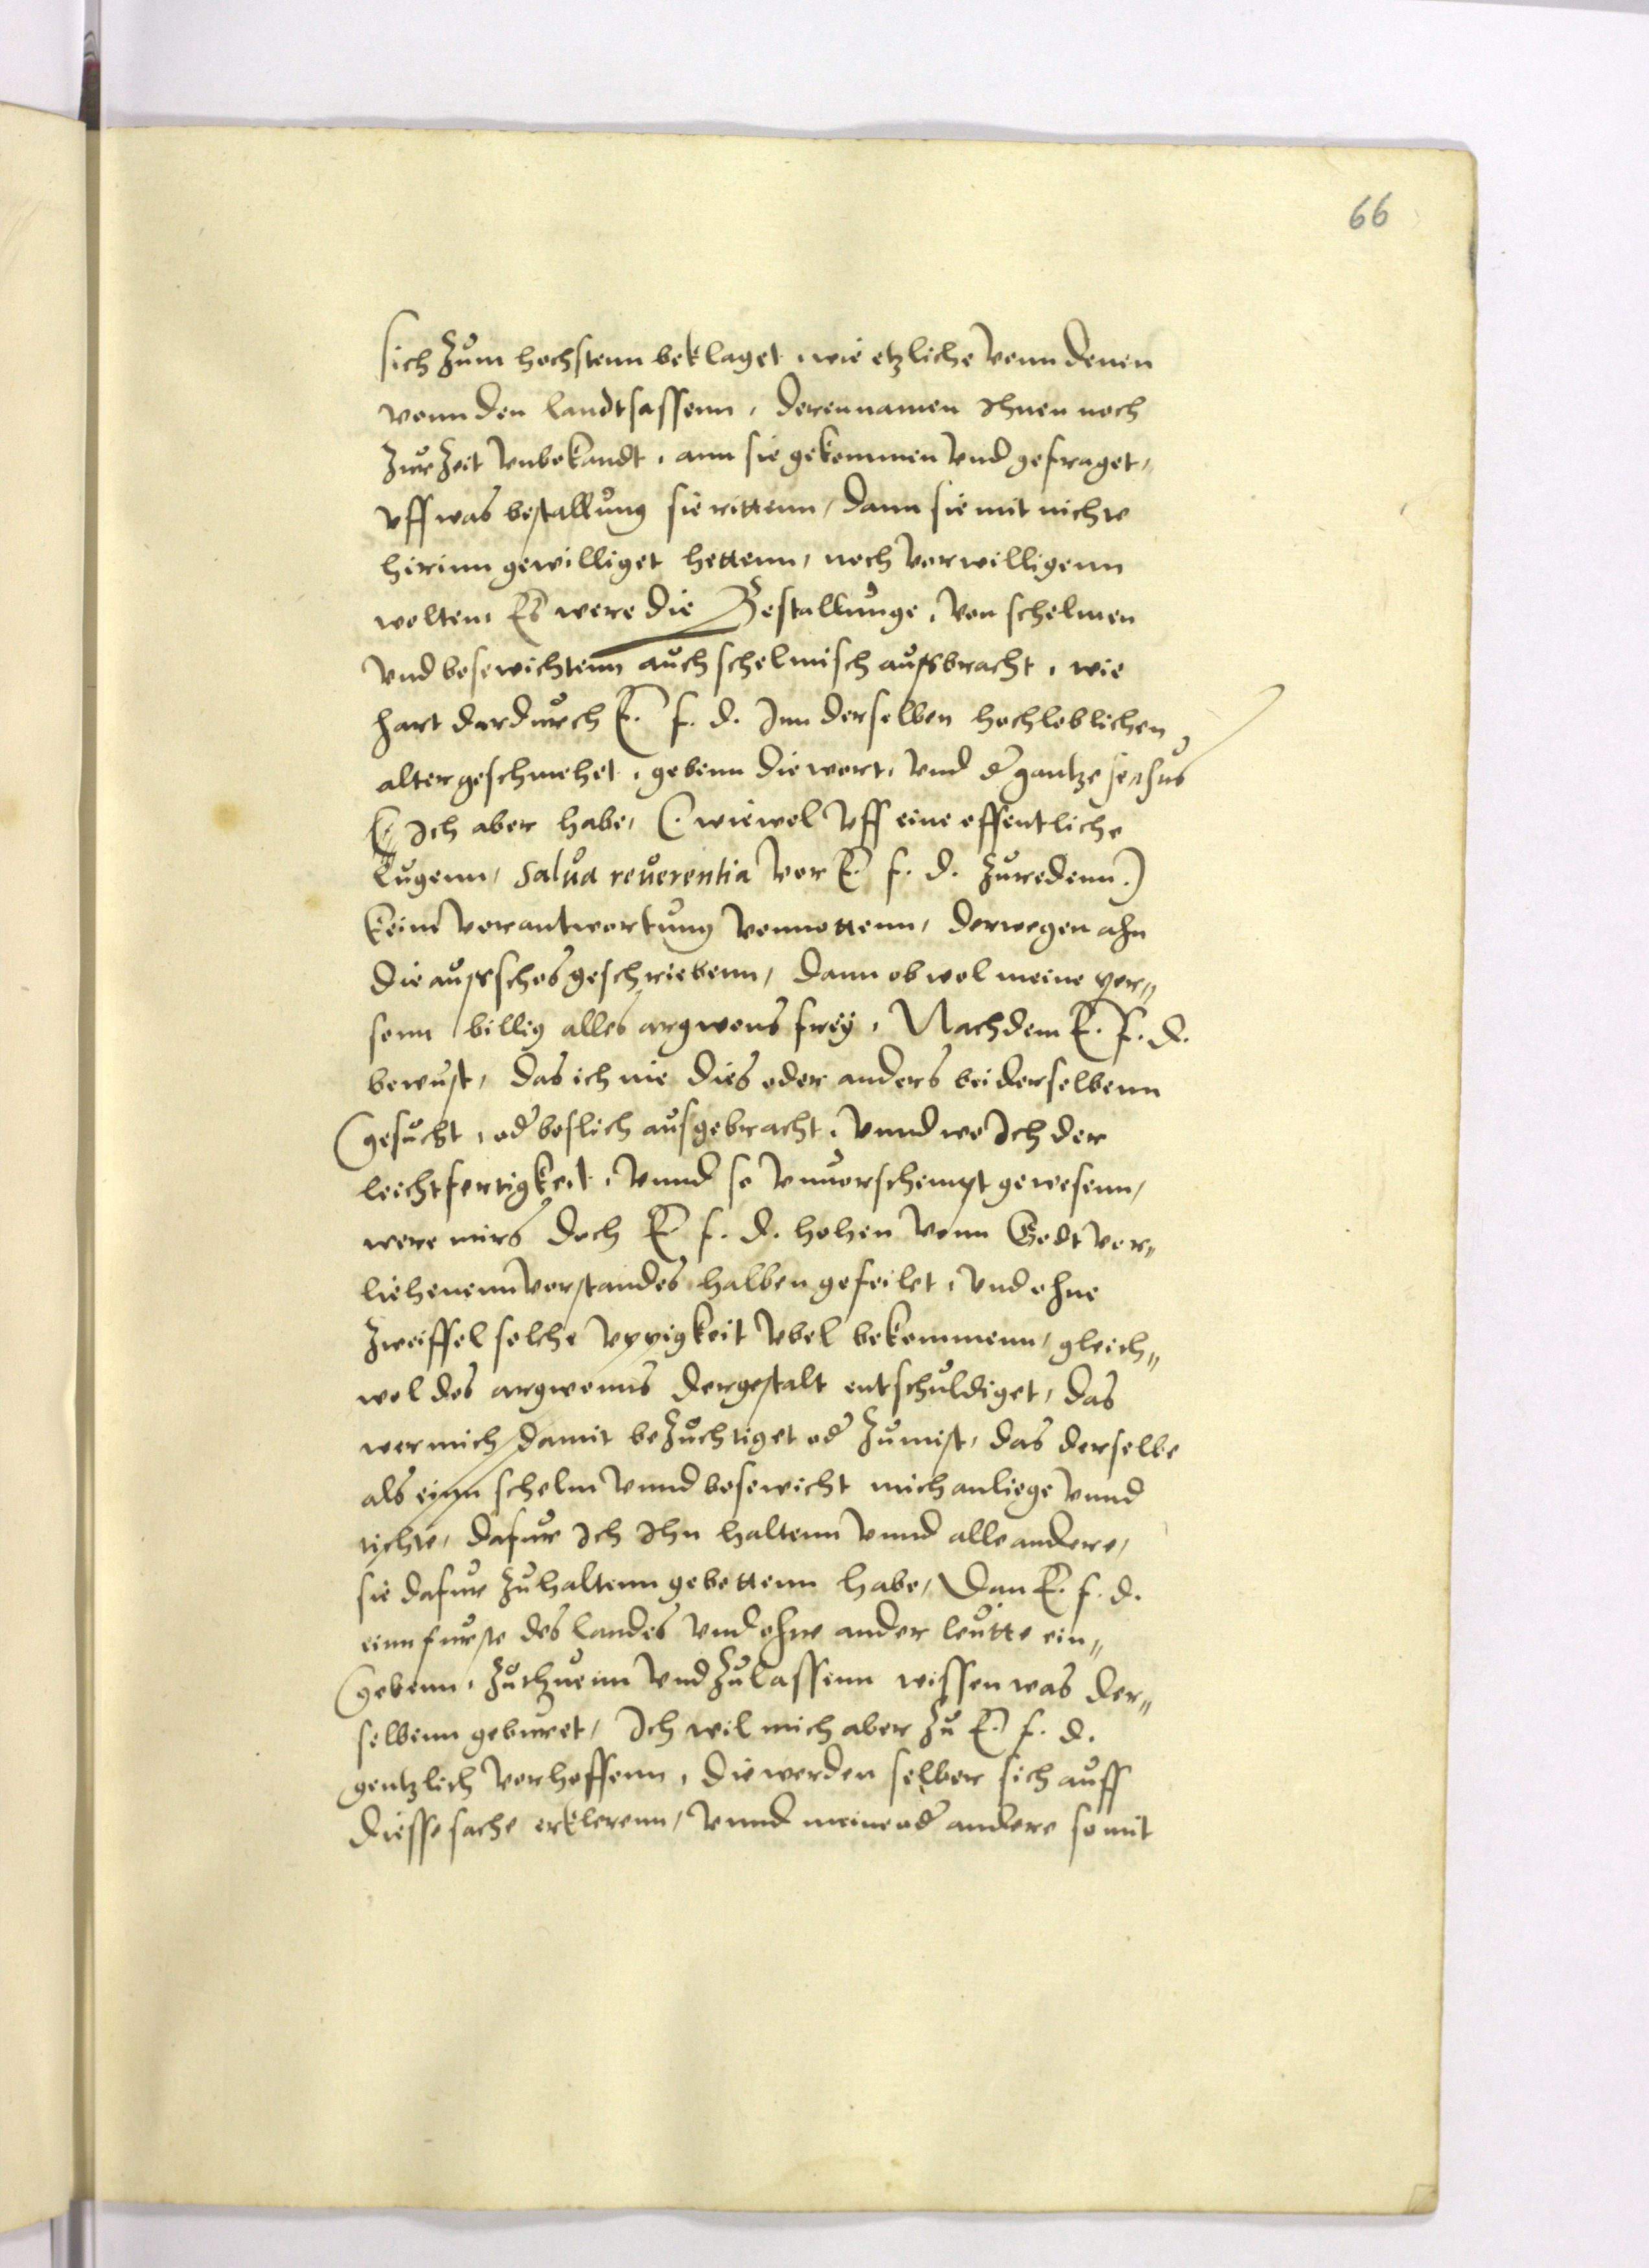 66
sich zum hochstenn beklaget, wie etzliche vonn denen
vonn den landtsassenn, deren namen Ihnen noch
zur Zeit vnbekandt, ann sie gekommen vnd gefraget,
vff was bestallung sie rittenn, dann sie mit nichte
hirinn gewilliget hettenn, noch verwilligenn
wolten, Es were die Bestallunge, von schelmen
vnd bosewichtenn auch schelmisch außbracht, wie
hart dardurch E. f. d. Inn derselben hochloblichen
alter geschmehet, gebenn die wort, vnd d' gantze sensus
Ich aber habe, (wiewol vff eine offentliche
Lugenn, salua reuerentia vor E. f. d. zuredenn.)
keine verantwortung vonnottenn, derwegen ahn
die außschos geschriebenn, dann ob wol meine per„
sonn billig alles argwons frey, Nachdem E. f. d.
bewust, das ich nie dies oder anders bei derselbenn
gesucht, od' boslich ausgebracht, vnnd wo Ich der
leichtfertigkeit, vnnd so vnuorschempt gewesenn,
were mirs doch E. f. d. hohen vonn Godt ver„
liehenenn verstandes halben gefeilet, vnd ohne
zweiffel solche vppigkeit vbel bekommenn, gleich„
wol des argwonns dergestalt entschuldiget, das
wer mich damit bezuchtiget od' zumist, das derselbe
als einn schelm vnnd bosewicht mich anliege vnnd
tichte, dafur Ich Ihn haltenn vnnd alle andere,
sie dafur zuhaltenn gebettenn habe, Dan E. f. d.
einn furste des landes vnd ohne ander leutte ein„
gebenn, zuthuenn vnd zulassenn wissen was der„
selbenn geburet, Ich wil mich aber zu E. f. d.
gentzlich verhoffenn, die werden selber sich auff
diesse sache erklerenn, vnnd meine od' andere somit